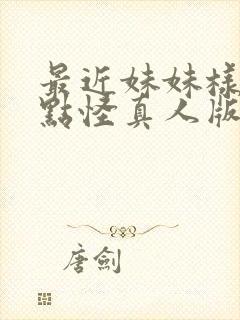 最近妹妹樣
點怪真人版
唐劍